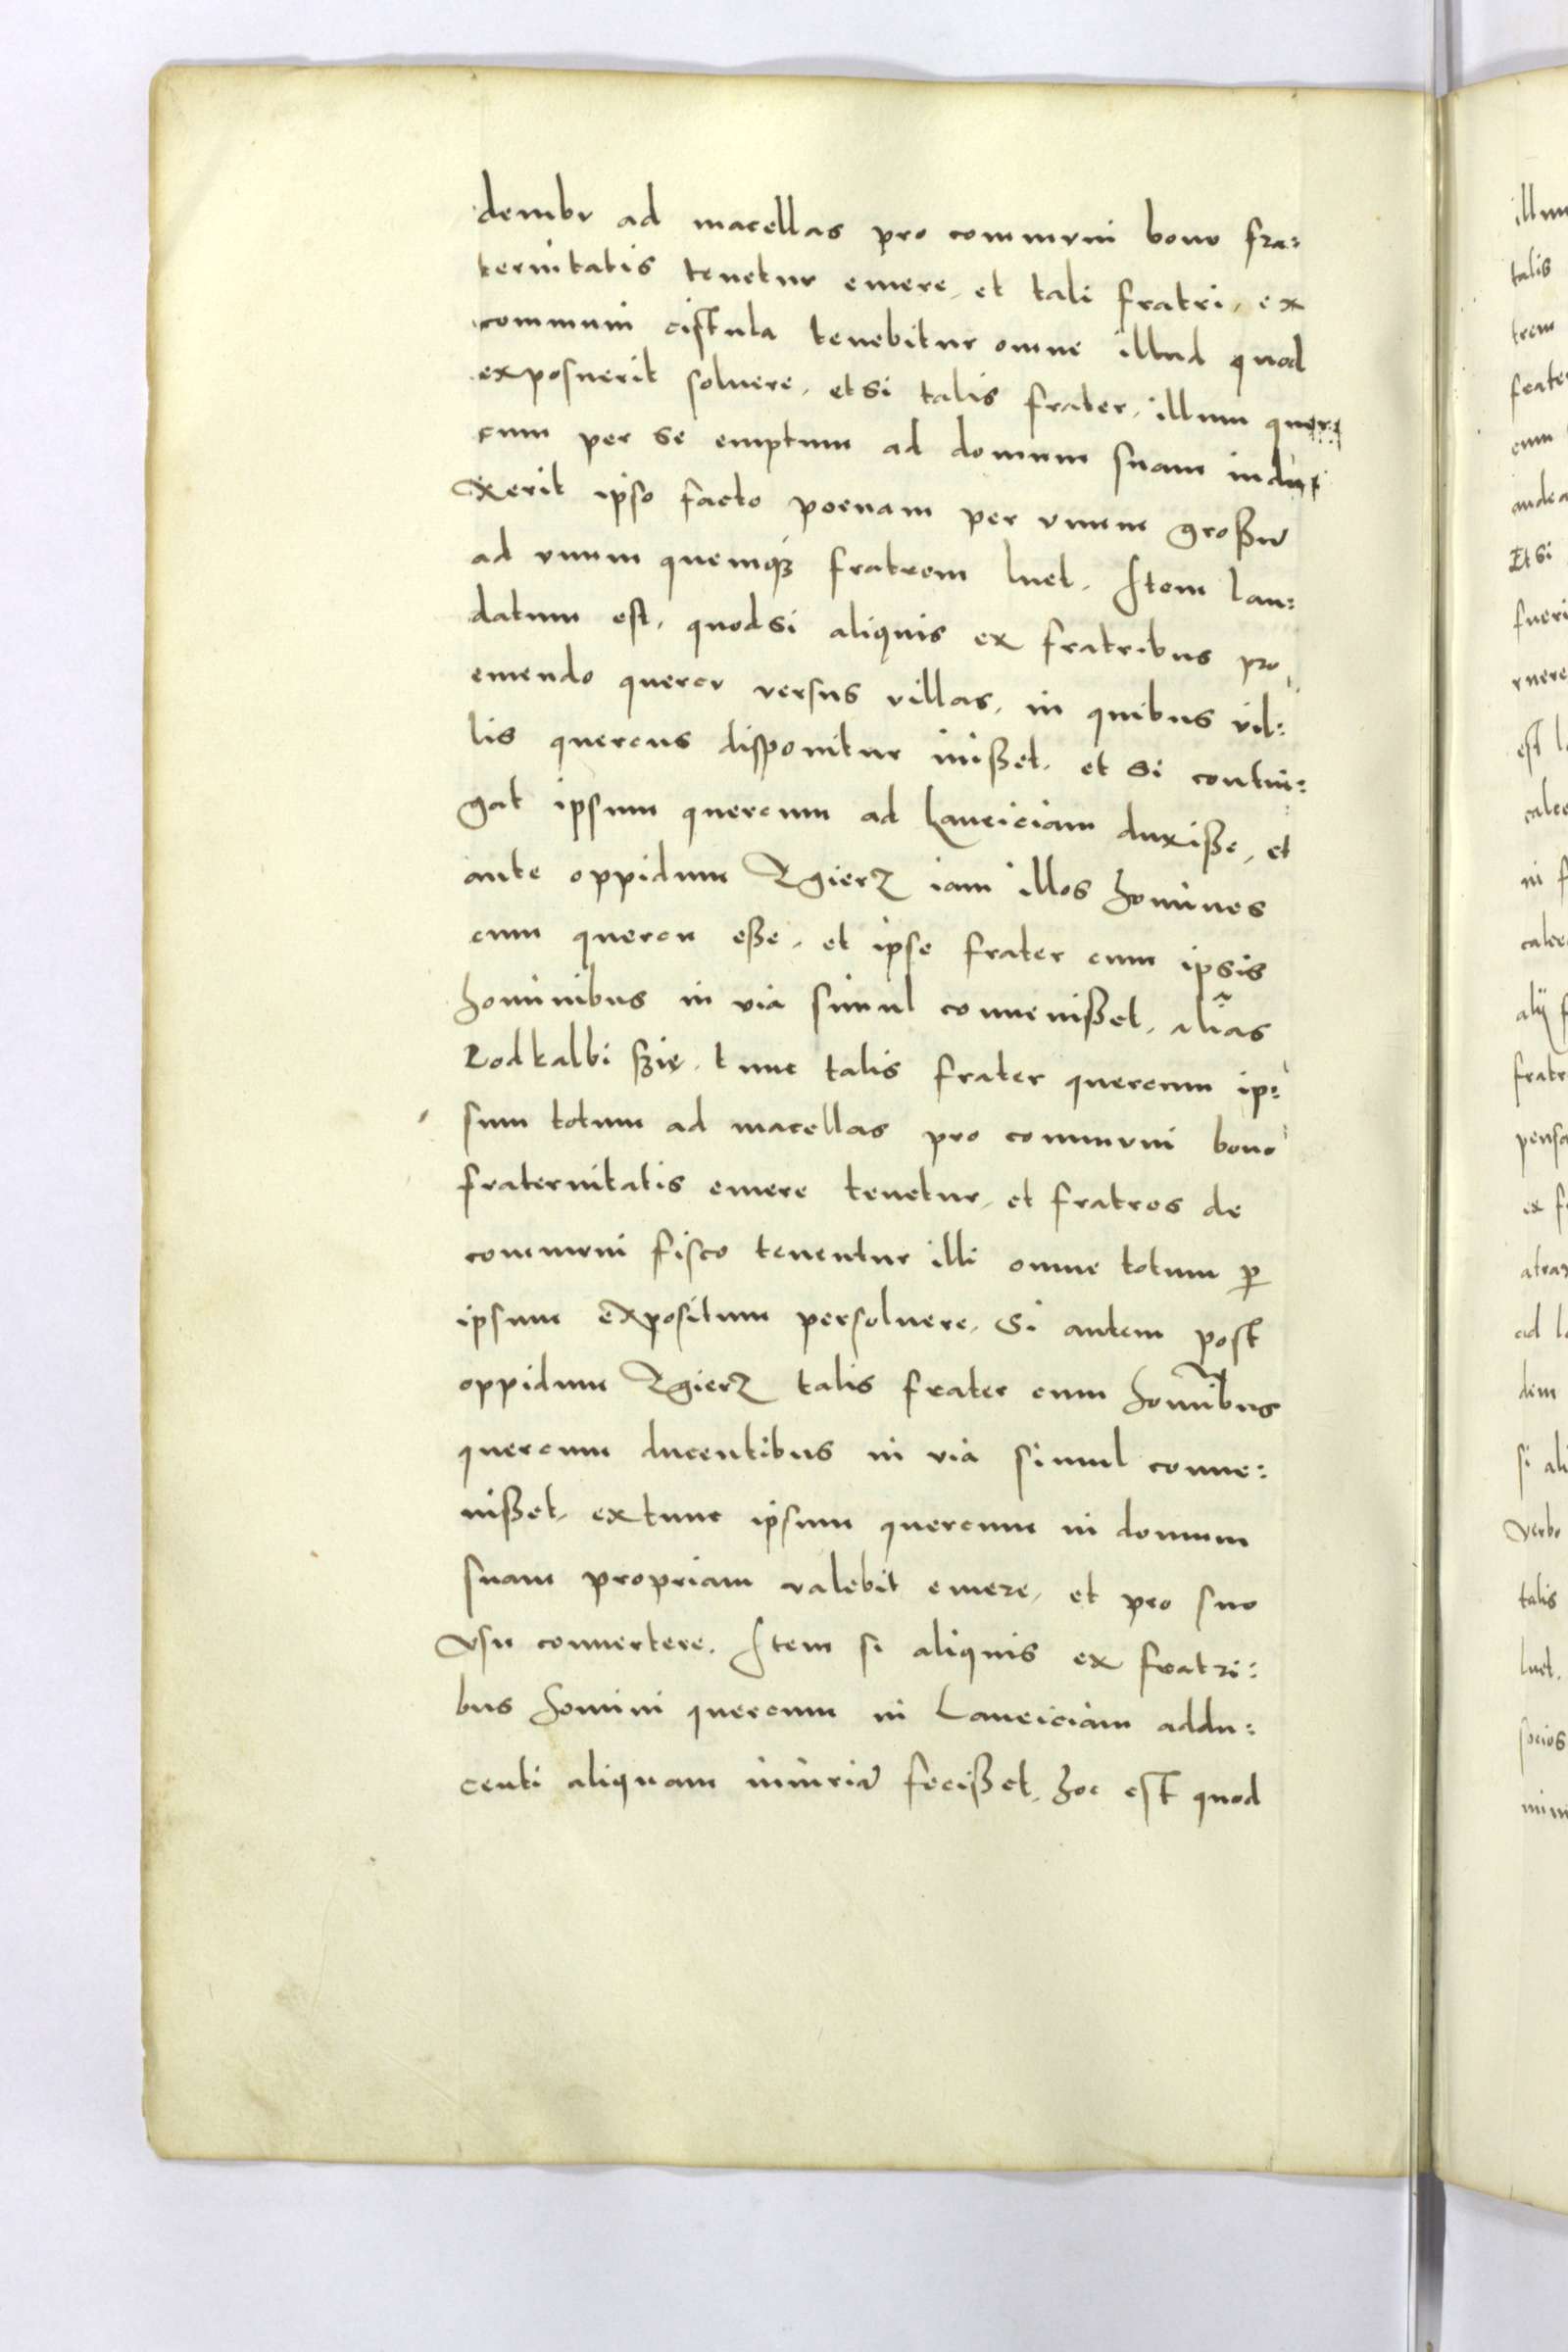 dembv ad macellas pro commvni bono fra:
ternitatis tenetur emere, et tali fratri, ex
communi cistula tenebitur omne illud quod
exposuerit soluere, et si talis frater, illum quer:
cum per se emptum ad domum suam indu:
xerit ipso facto poenam per vnum großũ
ad vnum quemqꝫ fratrem luet. Item lau:
datum est, quod si aliquis ex fratribus pro
emendo quercv versus villas, in quibus vil:
lis quercus disponitur iuißet, et si contin:
gat ipsum quercum ad Lanciciam duxiße, et
ante oppidum Zgierz iam illos homines
cum quercu eße, et ipse frater cum ipsis
hominibus in via simul conuenißet, alĩas
Zodkalbi szię, tunc talis frater quercum ip:
sum totum ad macellas pro commvni bono
fraternitatis emere tenetur, et fratres de
commvni fisco tenentur illi omne totum ꝑ
ipsum expositum persoluere, Si autem post
oppidum Zgierz talis frater cum homĩbus
quercum ducentibus in via simul conue:
nißet, extunc ipsum quercum in domum
suam propriam valebit emere, et pro suo
vsu conuertere. Item si aliquis ex fratri:
bus homini quercum in Lanciciam addu:
centi aliquam iniuriã fecißet, hoc est quod

illum
talis
trem
frater
cum
Et si
fueri
est l
calce
ni f
calce
alij f
fratr
pensa
ex f
ad l
dem
si ali
verbo
talis
luet.
socios